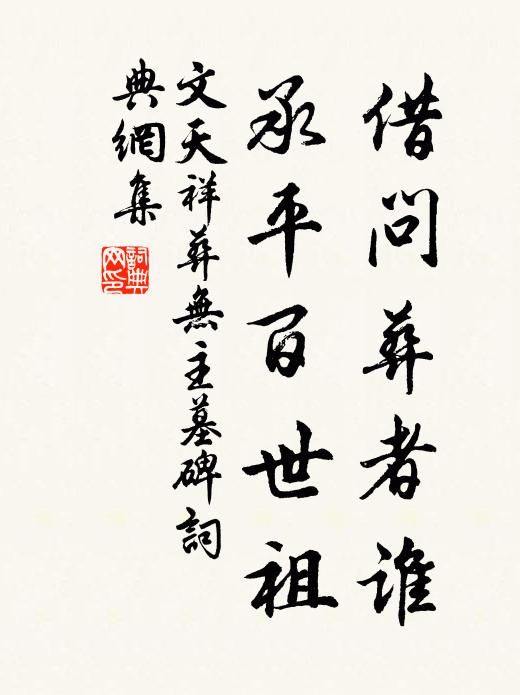 借問葬者誰
承平百世祖
文天祥葬無主墓碑詞
典網集
詞典網印